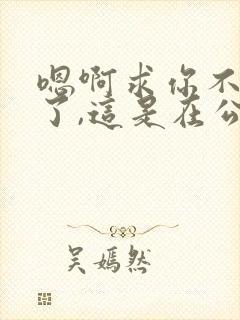 嗯啊求你不
了,這是在公
吴嫣然